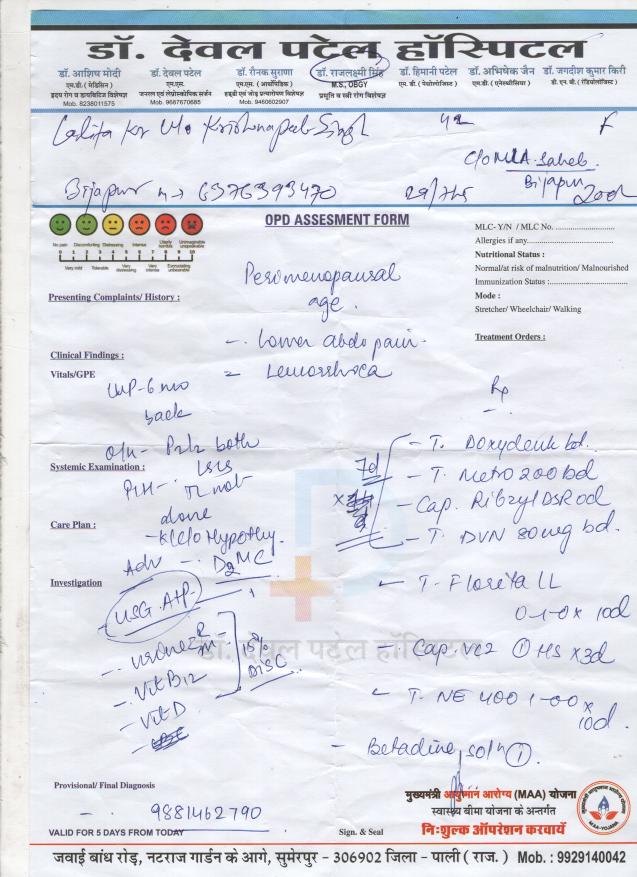 डॉ. देवल पटेल हॉस्पिटल
डॉ. आशिष मोदी
एम.डी. (मेडिसिन)
हृदय रोग व डायबिटिज विशेषज्ञ
Mob. 8238011575
डॉ. देवल पटेल
एम.एस.
जनरल एवं लेप्रोस्कोपिक सर्जन
Mob. 9687670685
डॉ. रौनक सुराणा
एम.एस. (आर्थोपेडिक)
हड्डी एवं जोड़ प्रत्यारोपण विशेषज्ञ
Mob. 9460602907
डॉ. राजलक्ष्मी सिंह
M.S., OBGY
प्रसूति व स्त्री रोग विशेषज्ञ
डॉ. हिमानी पटेल
एम. डी. (पेथोलोजिस्ट)
डॉ. अभिषेक जैन
एम.डी. (एनेस्थीसिया)
डॉ. जगदीश कुमार किरी
डी. एन. बी. (रेडियोलोजिस्ट)
Lalita Kr W/o Krishnapal Singh 42 F
C/o MLA Saheb
Bijapur
Bijapur m → 6376393470 29/7/25
OPD ASSESMENT FORM
No pain Discomforting Distressing Intense Utterly horrible Unimaginable unspeakable
0 1 2 3 4 5 6 7 8 9 10
Very mild Tolerable Very distressing Very intense Excruciating unbearable
MLC- Y/N / MLC No. ......................
Allergies if any................................
Nutritional Status :
Normal/at risk of malnutrition/ Malnourished
Immunization Status :............................
Mode :
Stretcher/ Wheelchair/ Walking
Treatment Orders :
Presenting Complaints/ History :
Perimenopausal
age.
Clinical Findings :
- Lower abdo pain
Vitals/GPE
= Leucorrhoea
LMP - 6 mo
back
O/H - P2L2 both
LSCS
Systemic Examination :
P/H - TL not
done
Care Plan :
- K/C/O Hypothy.
Adv - D2MC
Investigation
- USG A+P
- Vit B12
- Vit D
15% DISC
Rp
7d
- T. Doxy bd.
- T. Metro 200 bd
- Cap. DSR od
- T. DVN 80mg bd.
- T. Florita LL
0-1-0 x 10d
- Cap. VC2 ① HS x 3d
- T. NE 400 1-0-0 x
10d.
- Betadine soln ①.
डॉ. देवल पटेल हॉस्पिटल
Provisional/ Final Diagnosis
- 9881462790
VALID FOR 5 DAYS FROM TODAY
Sign. & Seal
मुख्यमंत्री आयुष्मान आरोग्य (MAA) योजना
स्वास्थ्य बीमा योजना के अन्तर्गत
निःशुल्क ऑपरेशन करवायें
MAA-YOJANA
जवाई बांध रोड़, नटराज गार्डन के आगे, सुमेरपुर - 306902 जिला - पाली ( राज. ) Mob. : 9929140042